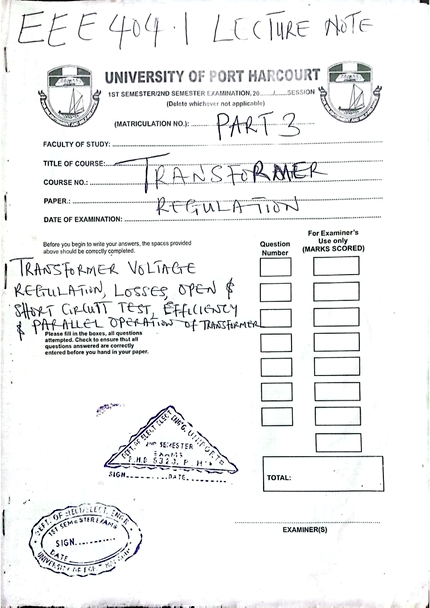 EEE 404.1 LECTURE NOTE
UNIVERSITY OF PORT HARCOURT
1ST SEMESTER/2ND SEMESTER EXAMINATION, 20..../.....SESSION
(Delete whichever not applicable)
(MATRICULATION NO.): PART 3
FACULTY OF STUDY:
TITLE OF COURSE: TRANSFORMER
COURSE NO.:
PAPER: REGULATION
DATE OF EXAMINATION:
Before you begin to write your answers, the spaces provided
above should be correctly completed.
Question
Number
For Examiner's
Use only
(MARKS SCORED)
TRANSFORMER VOLTAGE
REGULATION, LOSSES, OPEN &
SHORT CIRCUIT TEST, EFFICIENCY
& PARALLEL OPERATION OF TRANSFORMER
Please fill in the boxes, all questions
attempted. Check to ensure that all
questions answered are correctly
entered before you hand in your paper.
DEPT. OF ELECT/ELECT. ENG'G. UNIPORT
2ND SEMESTER
EXAMS
SIGN.........DATE.........
TOTAL:
DEPT. OF ELECT/ELECT. ENGR.
1ST SEMESTER EXAMS
SIGN...........
DATE
UNIVERSITY OF PORT HARCOURT
EXAMINER(S)